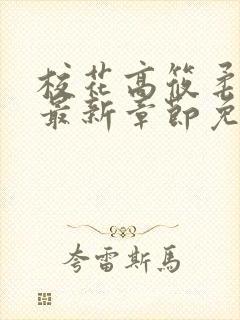 校花高筱柔
最新章節免
夸雷斯馬